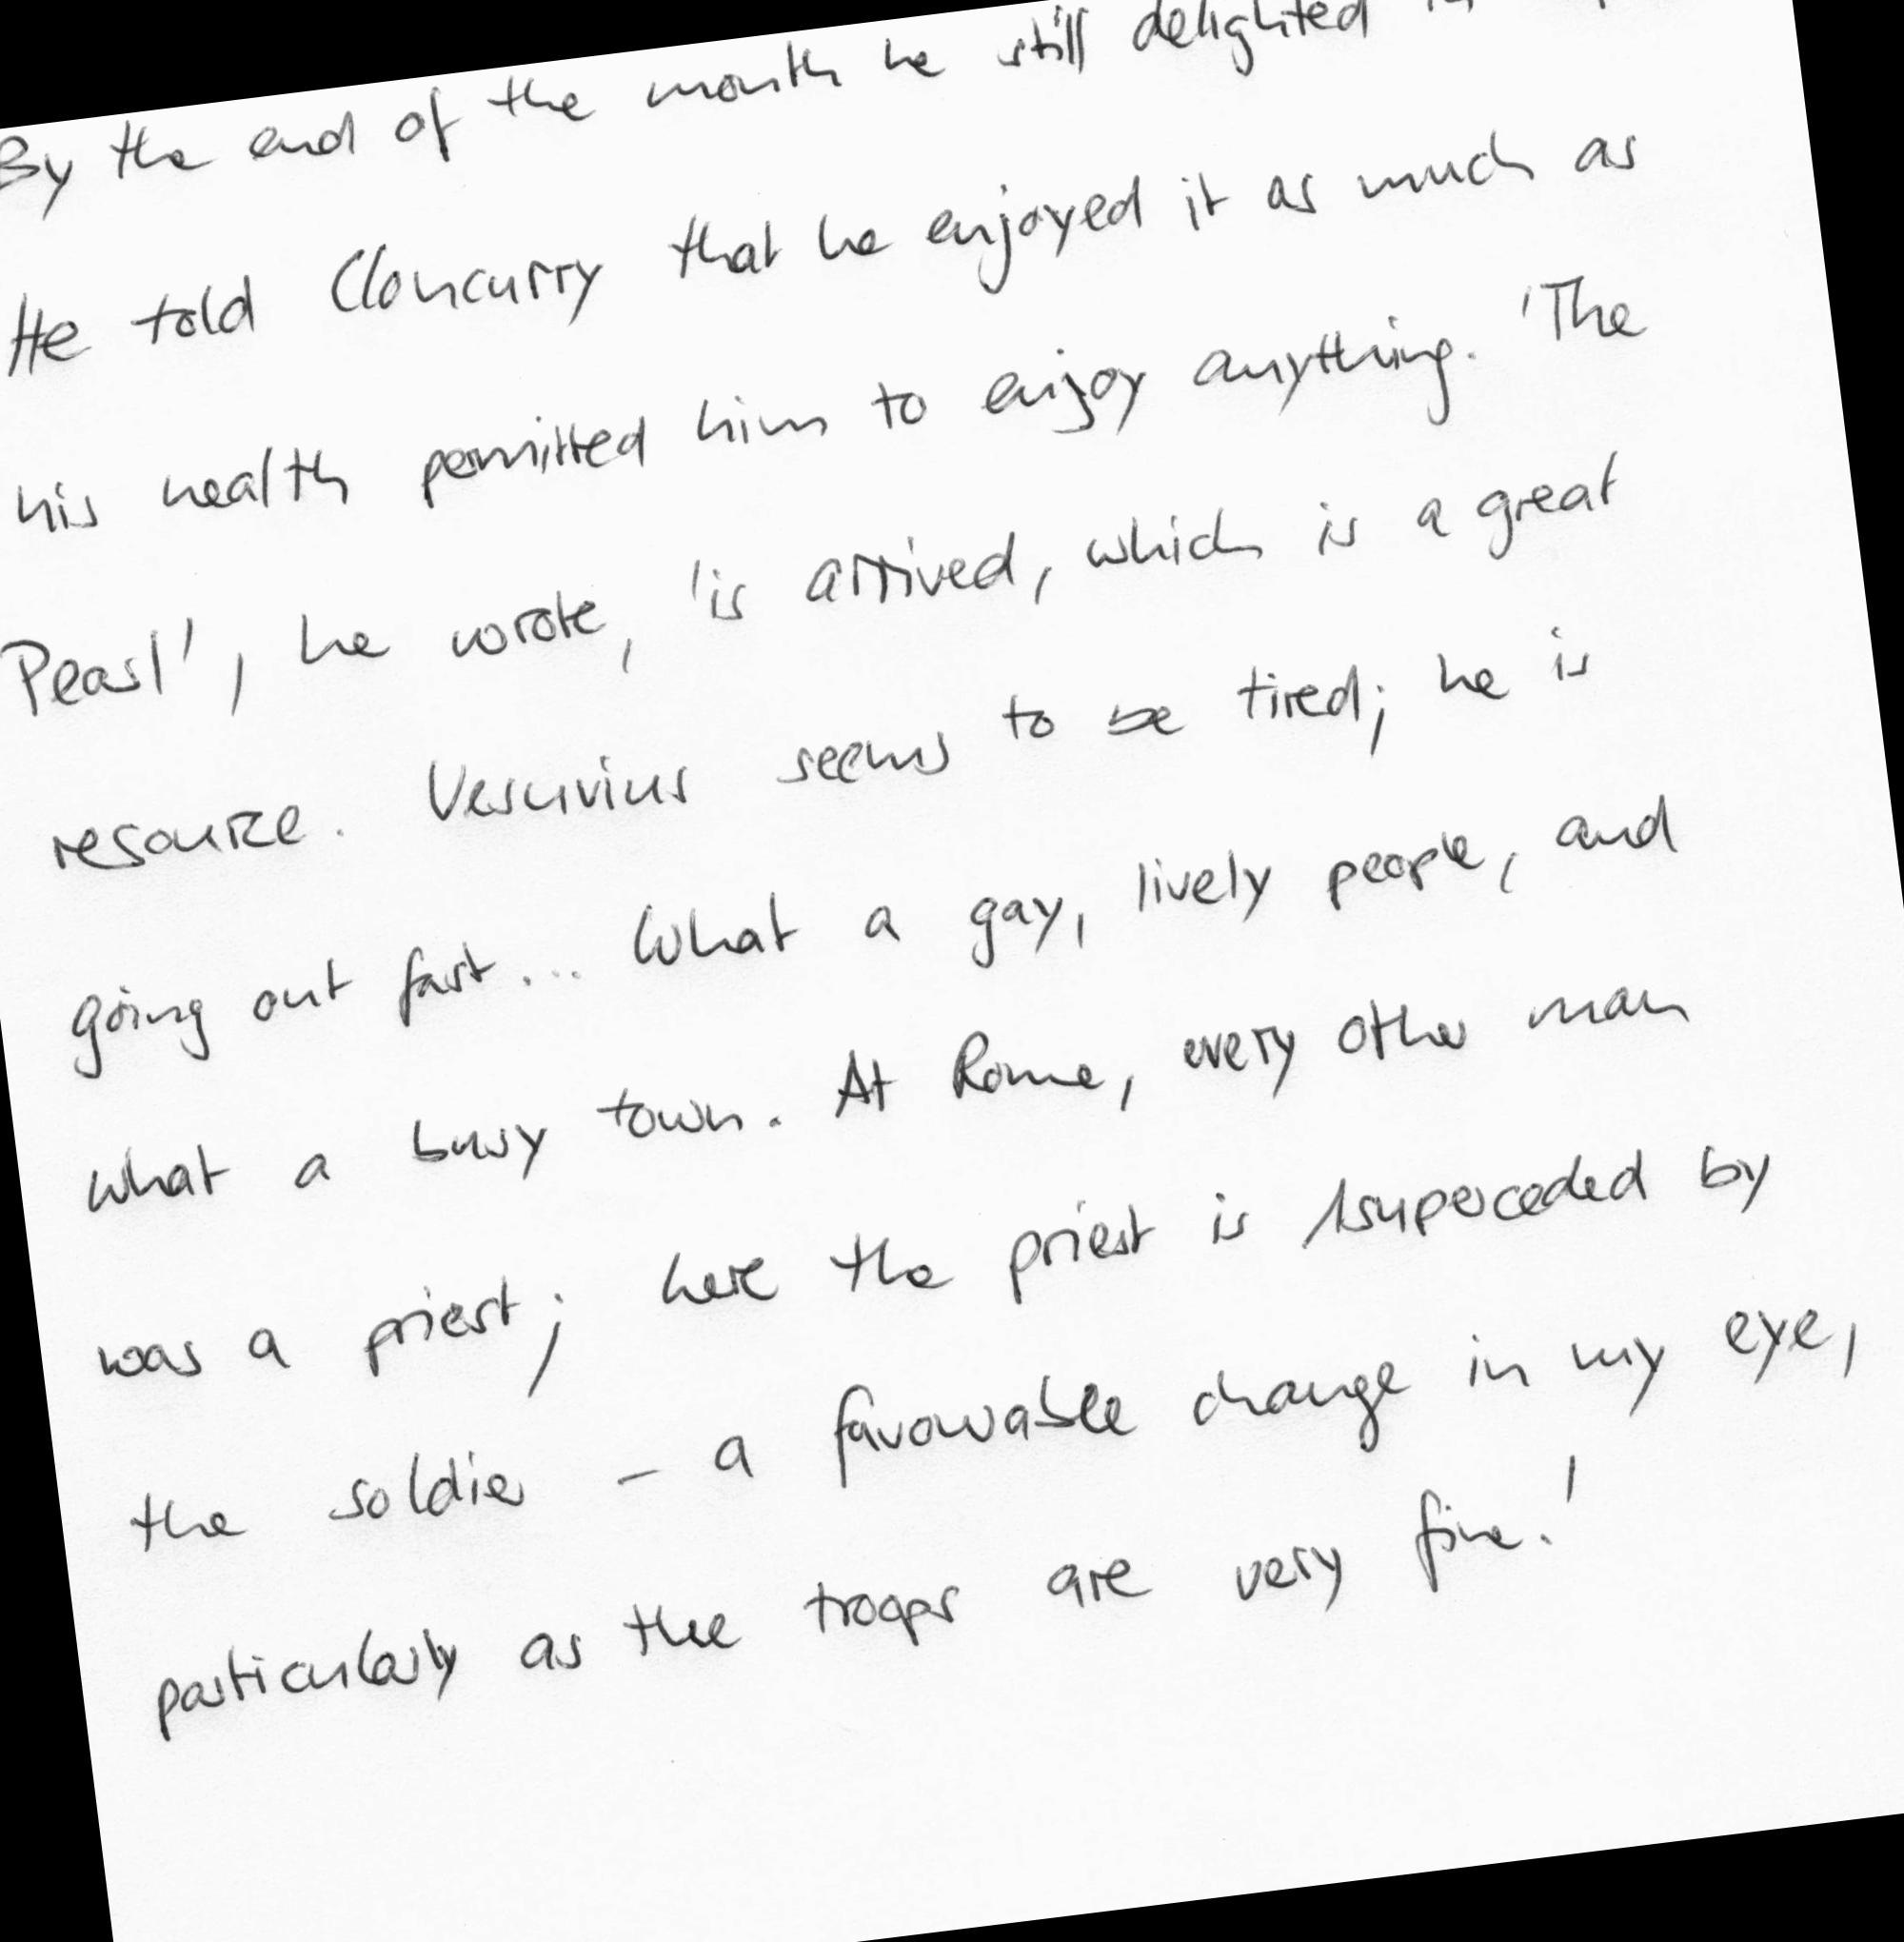 By the end of the month he still delighted in
He told Cloncurry that he enjoyed it as much as
his health permitted him to enjoy anything. 'The
Pearl', he wrote, 'is arrived, which is a great
resource. Vesuvius seems to be tired; he is
going out fast... What a gay, lively people, and
what a busy town. At Rome, every other man
was a priest; here the priest is superceded by
the soldier - a favourable change in my eye,
particularly as the troops are very fine.'